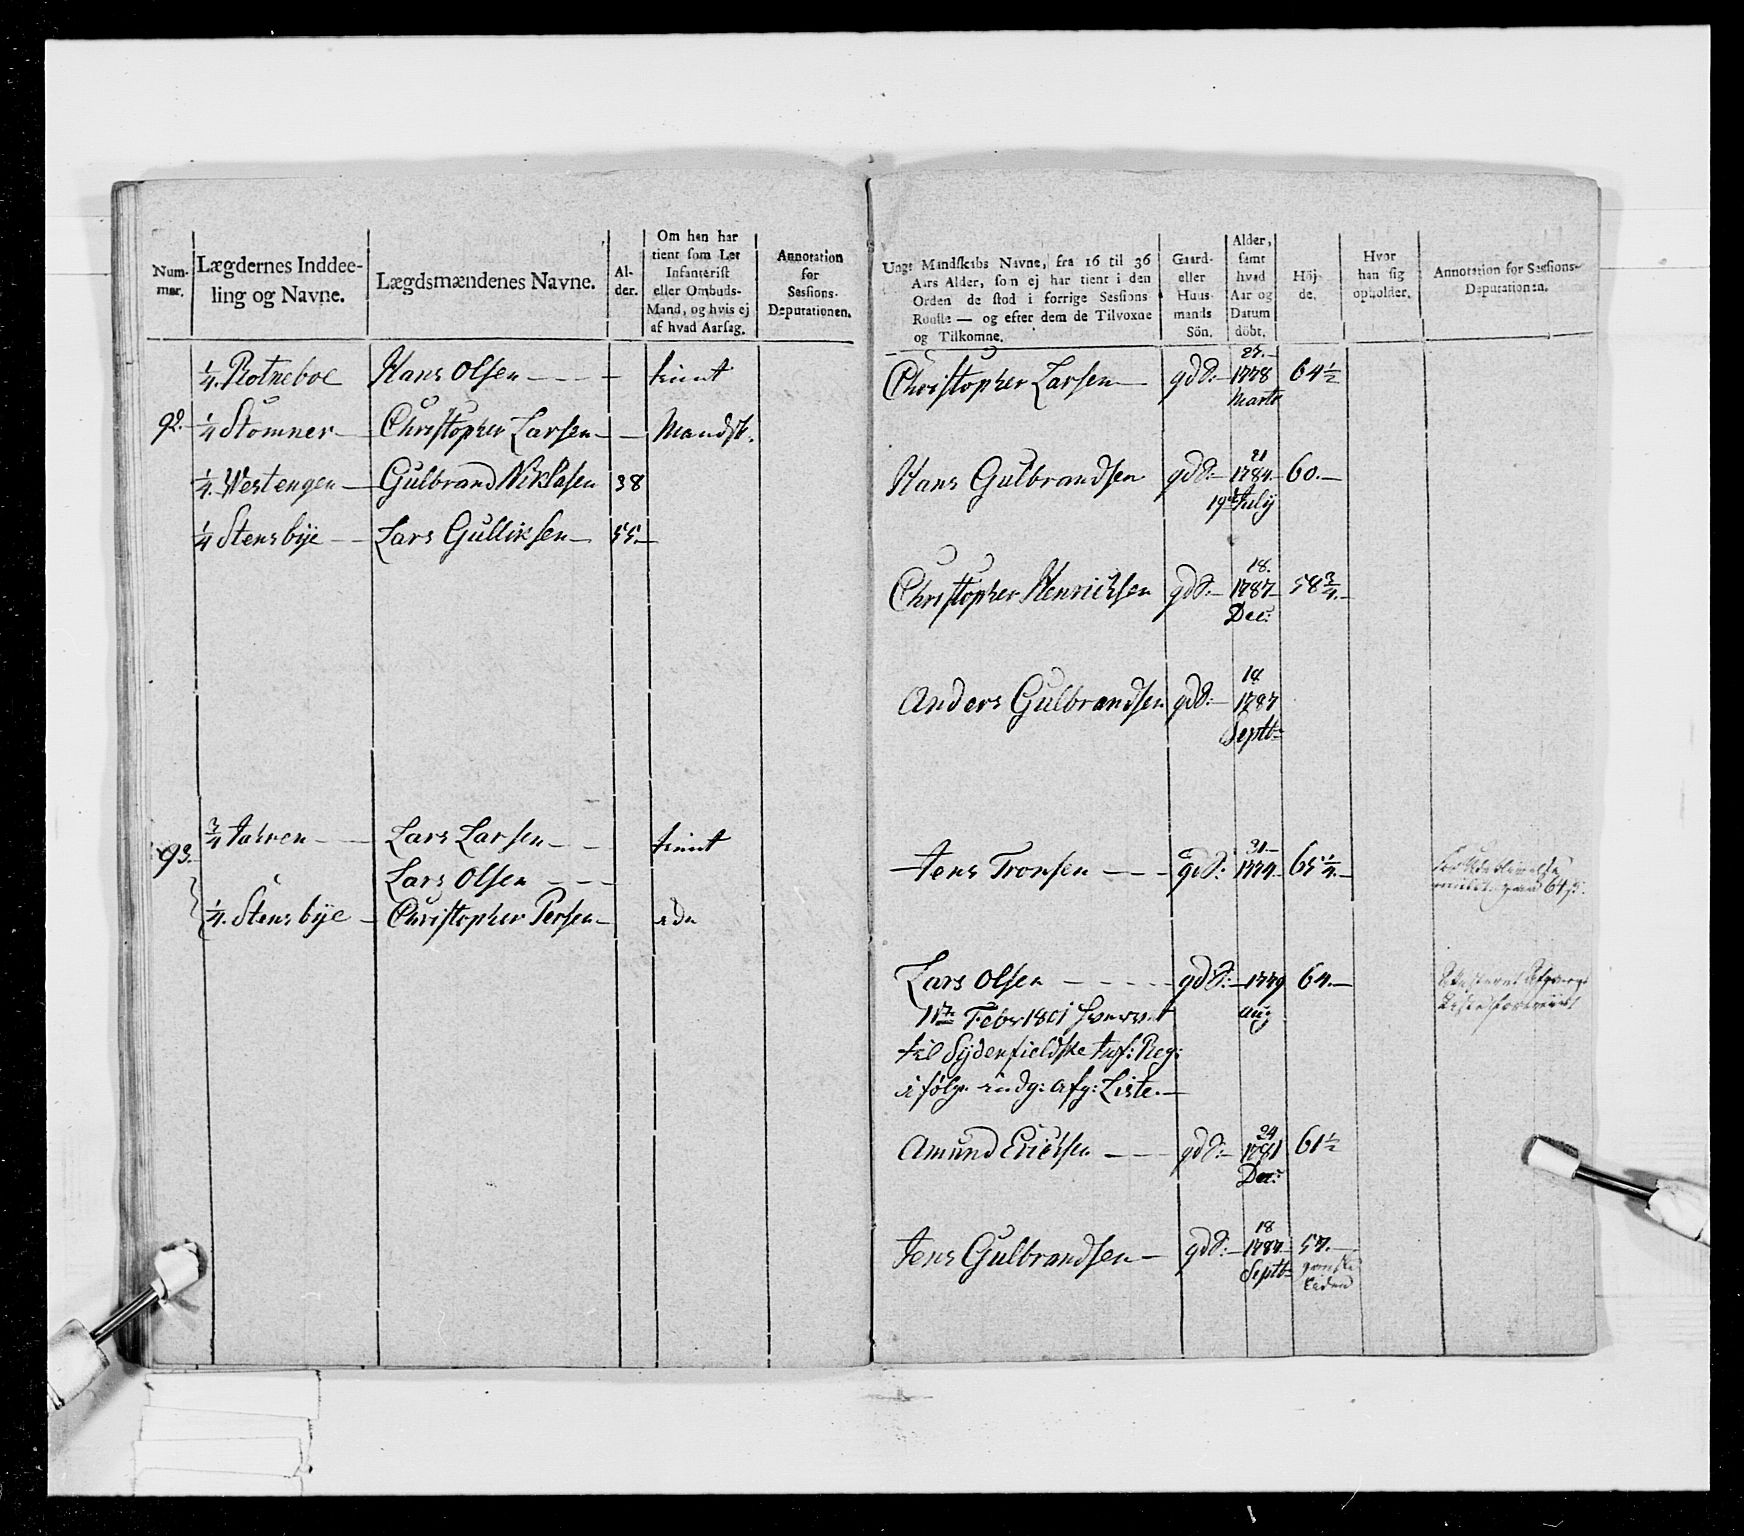 Num-
mer.
Lægdernes Inddee-
ling og Navne.
Lægdsmændenes Navne.
Al-
der.
Om han har
tient som Let
Infanterist
eller Ombuds-
Mand, og hvis ej
af hvad Aarsag.
Annotation
for
Sessions-
Deputationen.
1/4 Rotneboe Hans Olsen tient
92. 1/4 Stomner Christopher Larsen Mandsk.
1/4 Westengen Gulbrand Niklasen 38
1/4 Stensbÿe Lars Gulliksen 55.
93. 3/4 Lars Larsen tient
Lars Olsen
1/4 Stensbÿe Christopher Persen
Ungt Mandskabs Navne, fra 16 til 36
Aars Alder, som ej har tient i den
Orden de stod i forrige Sessions
Roulle — og efter dem de Tilvoxne
og Tilkomne.
Gaard-
eller
Huus-
mands
Sön.
Alder,
samt
hvad
Aar og
Datum
döbt.
Höj-
de.
Hvor
han sig
opholder.
Annotation for Sessions-
Deputationen.
25.
Christopher Larsen gdS: 1778 64 1/2
Marts
21
Hans Gulbrandsen gdS: 1784 60.
19de July
18.
Christopher Henrichsen gdS: 1787 58 3/4
Dec:
18
Anders Gulbrandsen gdS: 1787
Septb:
31
Jens Tronsen gdS: 1774 65 1/4
Lars Olsen gdS: 1779 64.
11te Febr 1801 hvervet Aug
til Sÿdenfieldske Inf: Reg:
i følge indg: Afg: Liste.
24
Amund Erichsen gdS: 1781 61 1/2
Dec:
18
Jens Gulbrandsen gdS: 1787 57.
Septb: